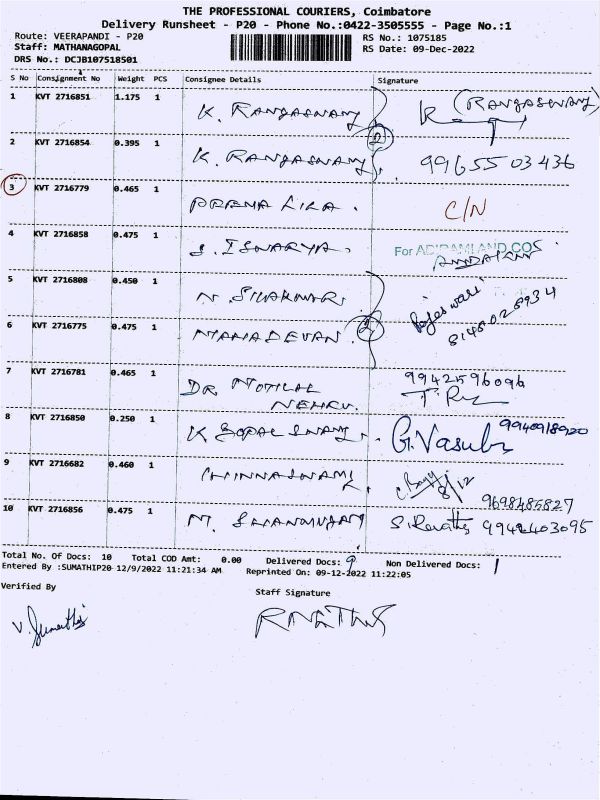 THE PROFESSIONAL COURIERS, Coimbatore
Delivery Runsheet - P20 - Phone No.:0422-3505555 - Page No.:1
Route: VEERAPANDI - P20 RS No.: 1075185
Staff: MATHANAGOPAL RS Date: 09-Dec-2022
DRS No.: DCJB107518501
S No Consignment No Weight PCS Consignee Details Signature
1 KVT 2716851 1.175 1 K. RANGASWAMY R (RANGASWAMY)
2 KVT 2716854 0.395 1 K. RANGASWAMY 2 9965503436
3 KVT 2716779 0.465 1 PREMA LILA. C/N
4 KVT 2716858 0.475 1 S. ISWARYA. For
5 KVT 2716808 0.450 1 N. SIVAKMAR. Rajeswari
6 KVT 2716775 0.475 1 MAHADEVAN. 2 8148028934
7 KVT 2716781 0.465 1 DR MOTILAL NEHRU. 9942596096
8 KVT 2716850 0.250 1 K GOPAL SWAMY. G. Vasuki 9940918920
9 KVT 2716682 0.460 1 CHINNASWAMY. 8/12
10 KVT 2716856 0.475 1 M. SHANMUGAM S. Revathy 9698485827 9942403095
Total No. Of Docs: 10 Total COD Amt: 0.00 Delivered Docs: 9 Non Delivered Docs: 1
Entered By :SUMATHIP20 12/9/2022 11:21:34 AM Reprinted On: 09-12-2022 11:22:05
Verified By Staff Signature
V. Sumathi